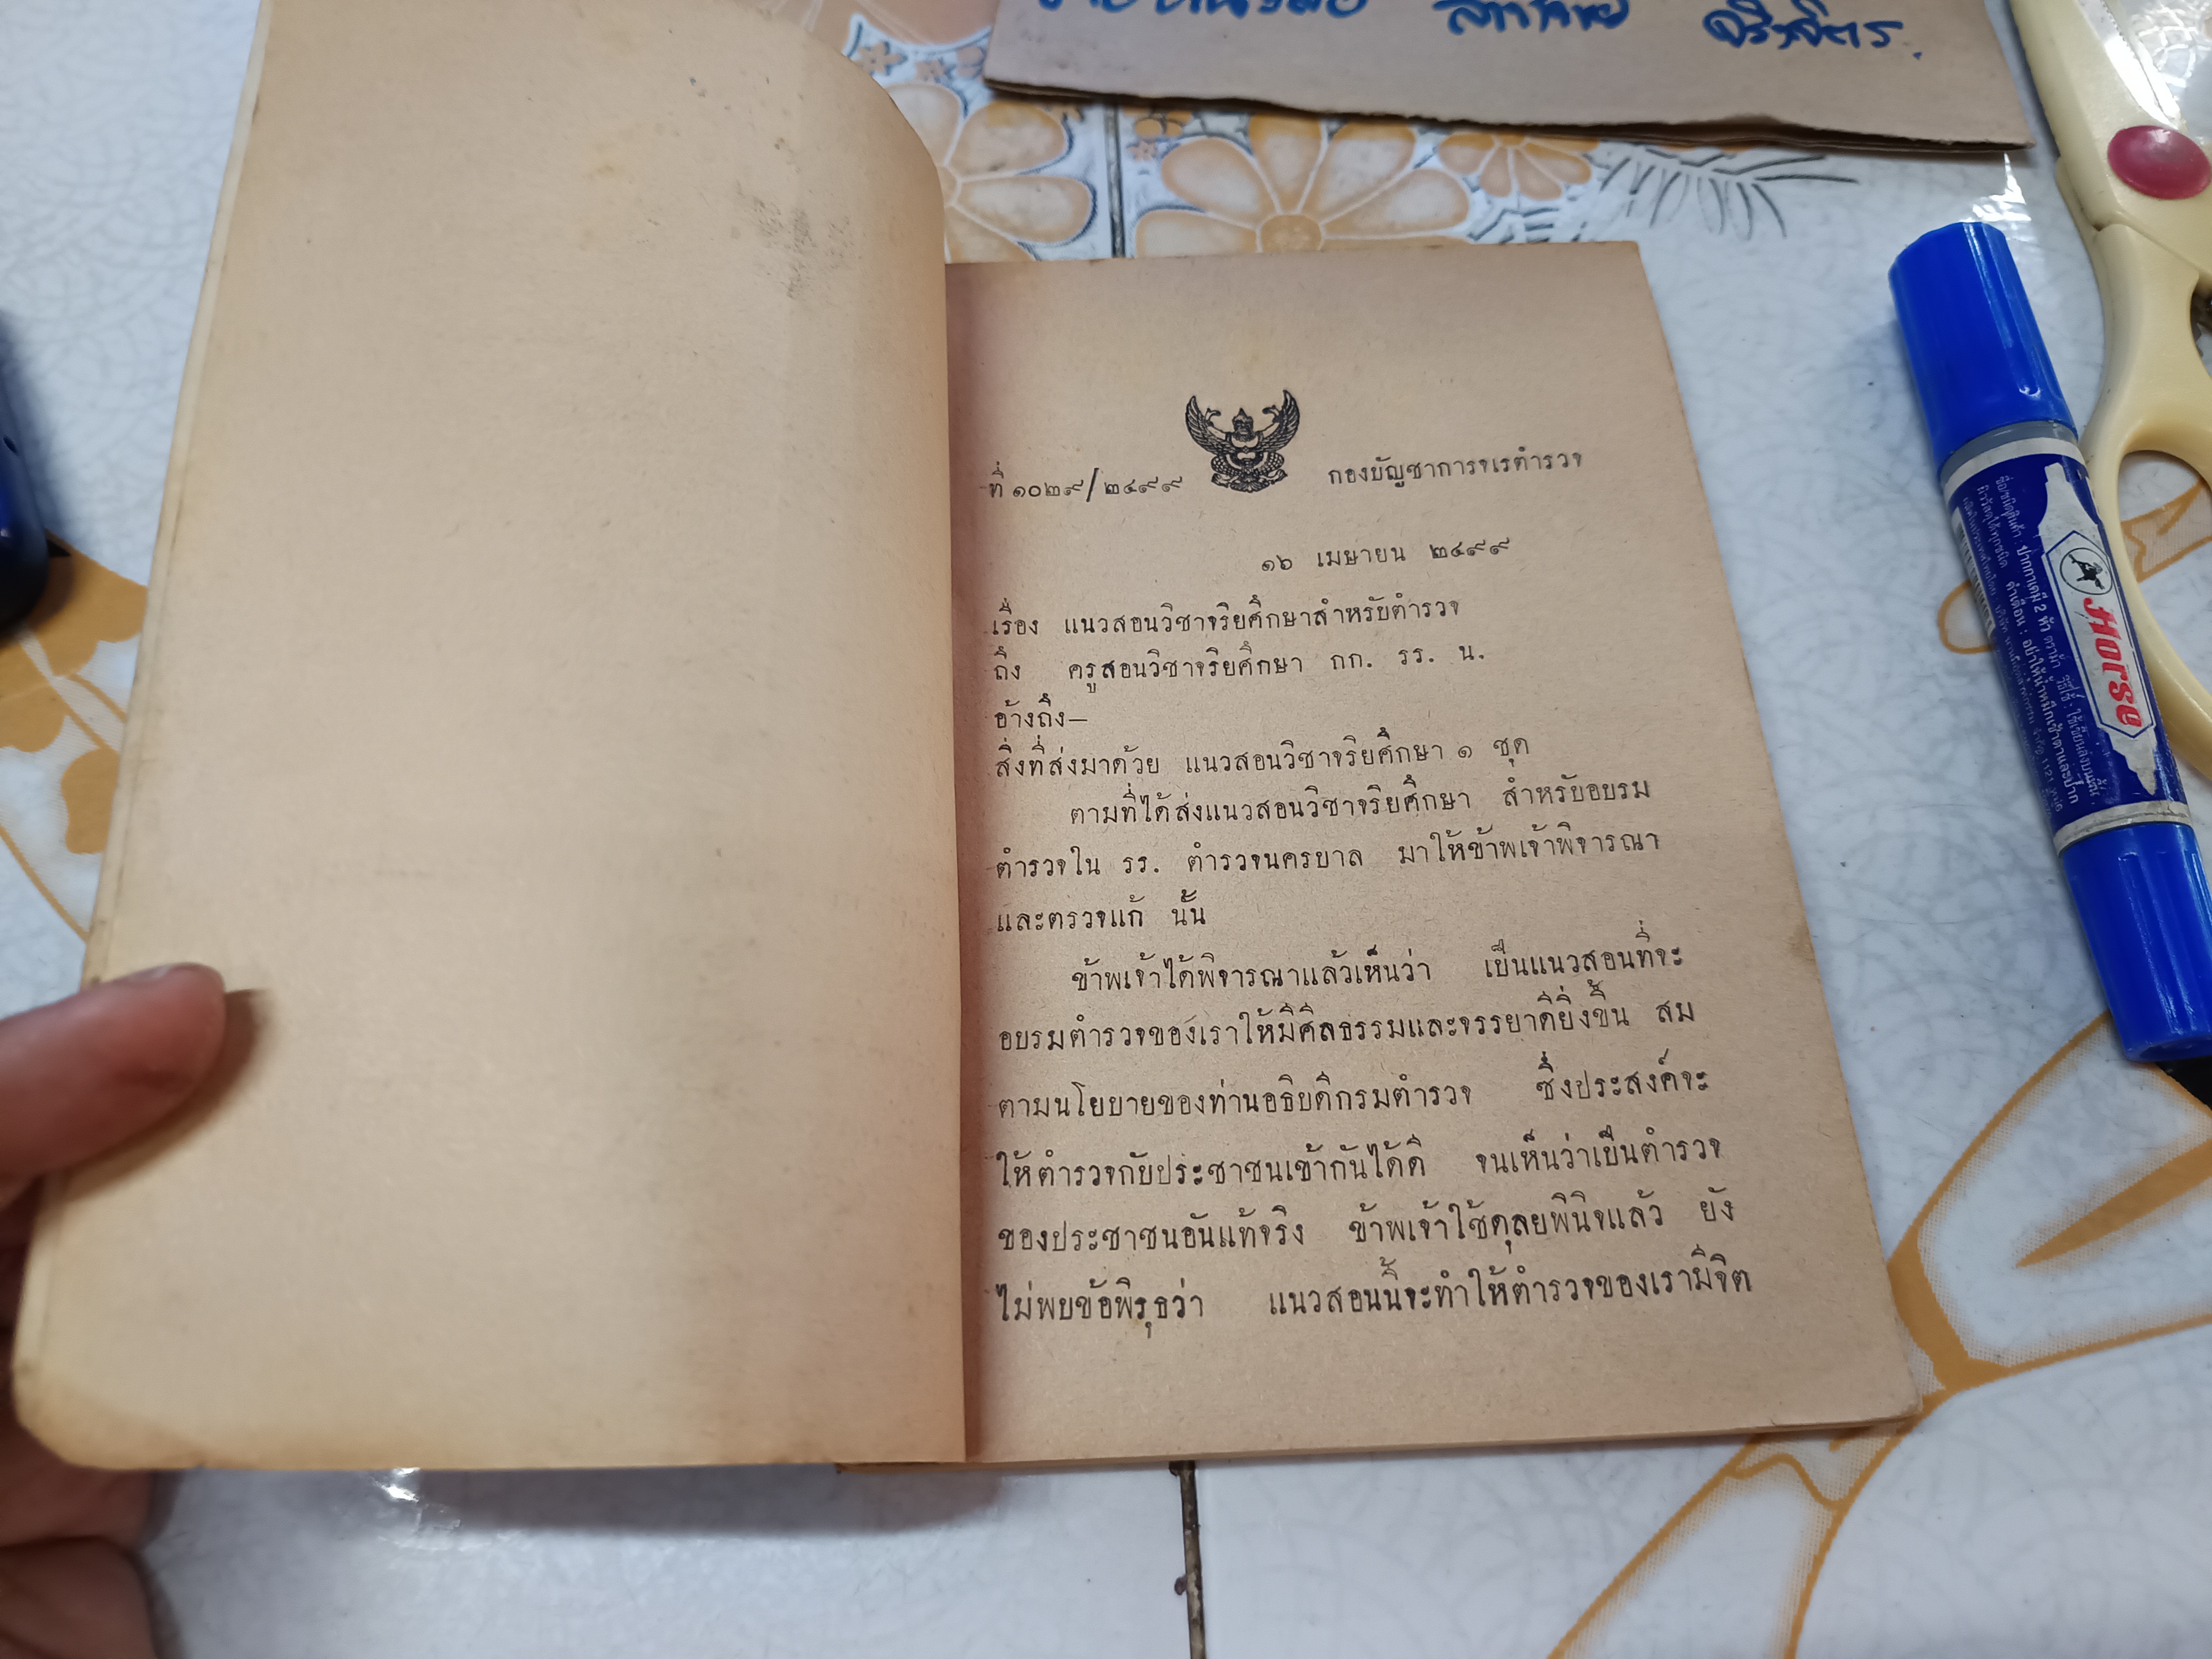 ที่ ๑๐๒๙/๒๔๙๙
กองบัญชาการจเรตำรวจ
๑๖ เมษายน ๒๔๙๙
เรื่อง แนวสอนวิชาจริยศึกษาสำหรับตำรวจ
ถึง ครูสอนวิชาจริยศึกษา กก. รร. น.
อ้างถึง—
สิ่งที่ส่งมาด้วย แนวสอนวิชาจริยศึกษา ๑ ชุด
ตามที่ได้ส่งแนวสอนวิชาจริยศึกษา สำหรับอบรม
ตำรวจใน รร. ตำรวจนครบาล มาให้ข้าพเจ้าพิจารณา
และตรวจแก้ นั้น
ข้าพเจ้าได้พิจารณาแล้วเห็นว่า เป็นแนวสอนที่จะ
อบรมตำรวจของเราให้มีศีลธรรมและจรรยาดียิ่งขึ้น สม
ตามนโยบายของท่านอธิบดีกรมตำรวจ ซึ่งประสงค์จะ
ให้ตำรวจกับประชาชนเข้ากันได้ดี จนเห็นว่าเป็นตำรวจ
ของประชาชนอันแท้จริง ข้าพเจ้าใช้ดุลยพินิจแล้ว ยัง
ไม่พบข้อพิรุธว่า แนวสอนนี้จะทำให้ตำรวจของเรามีจิต
Horse
ปากกาเคมี 2 หัว ตราม้า
คำเตือน : อย่าให้น้ำหมึกเข้าตาและปาก